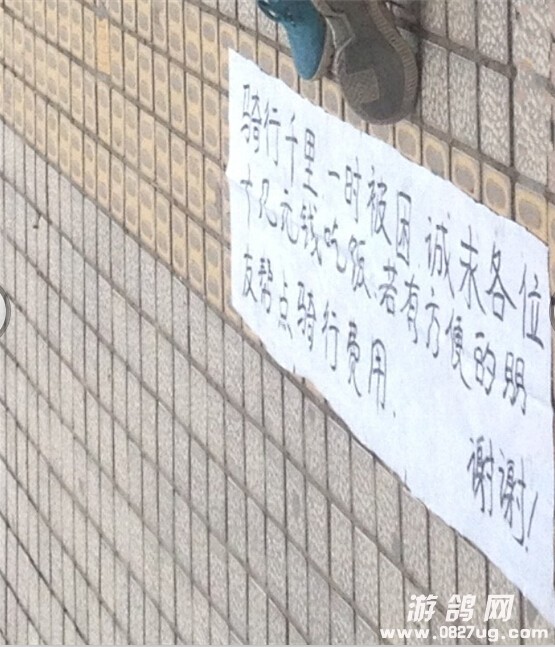 骑行千里一时被困,诚求各位
十几元钱吃饭,若有方便的朋
友帮点骑行费用.
谢谢!
游鸽网
www.0827ug.com